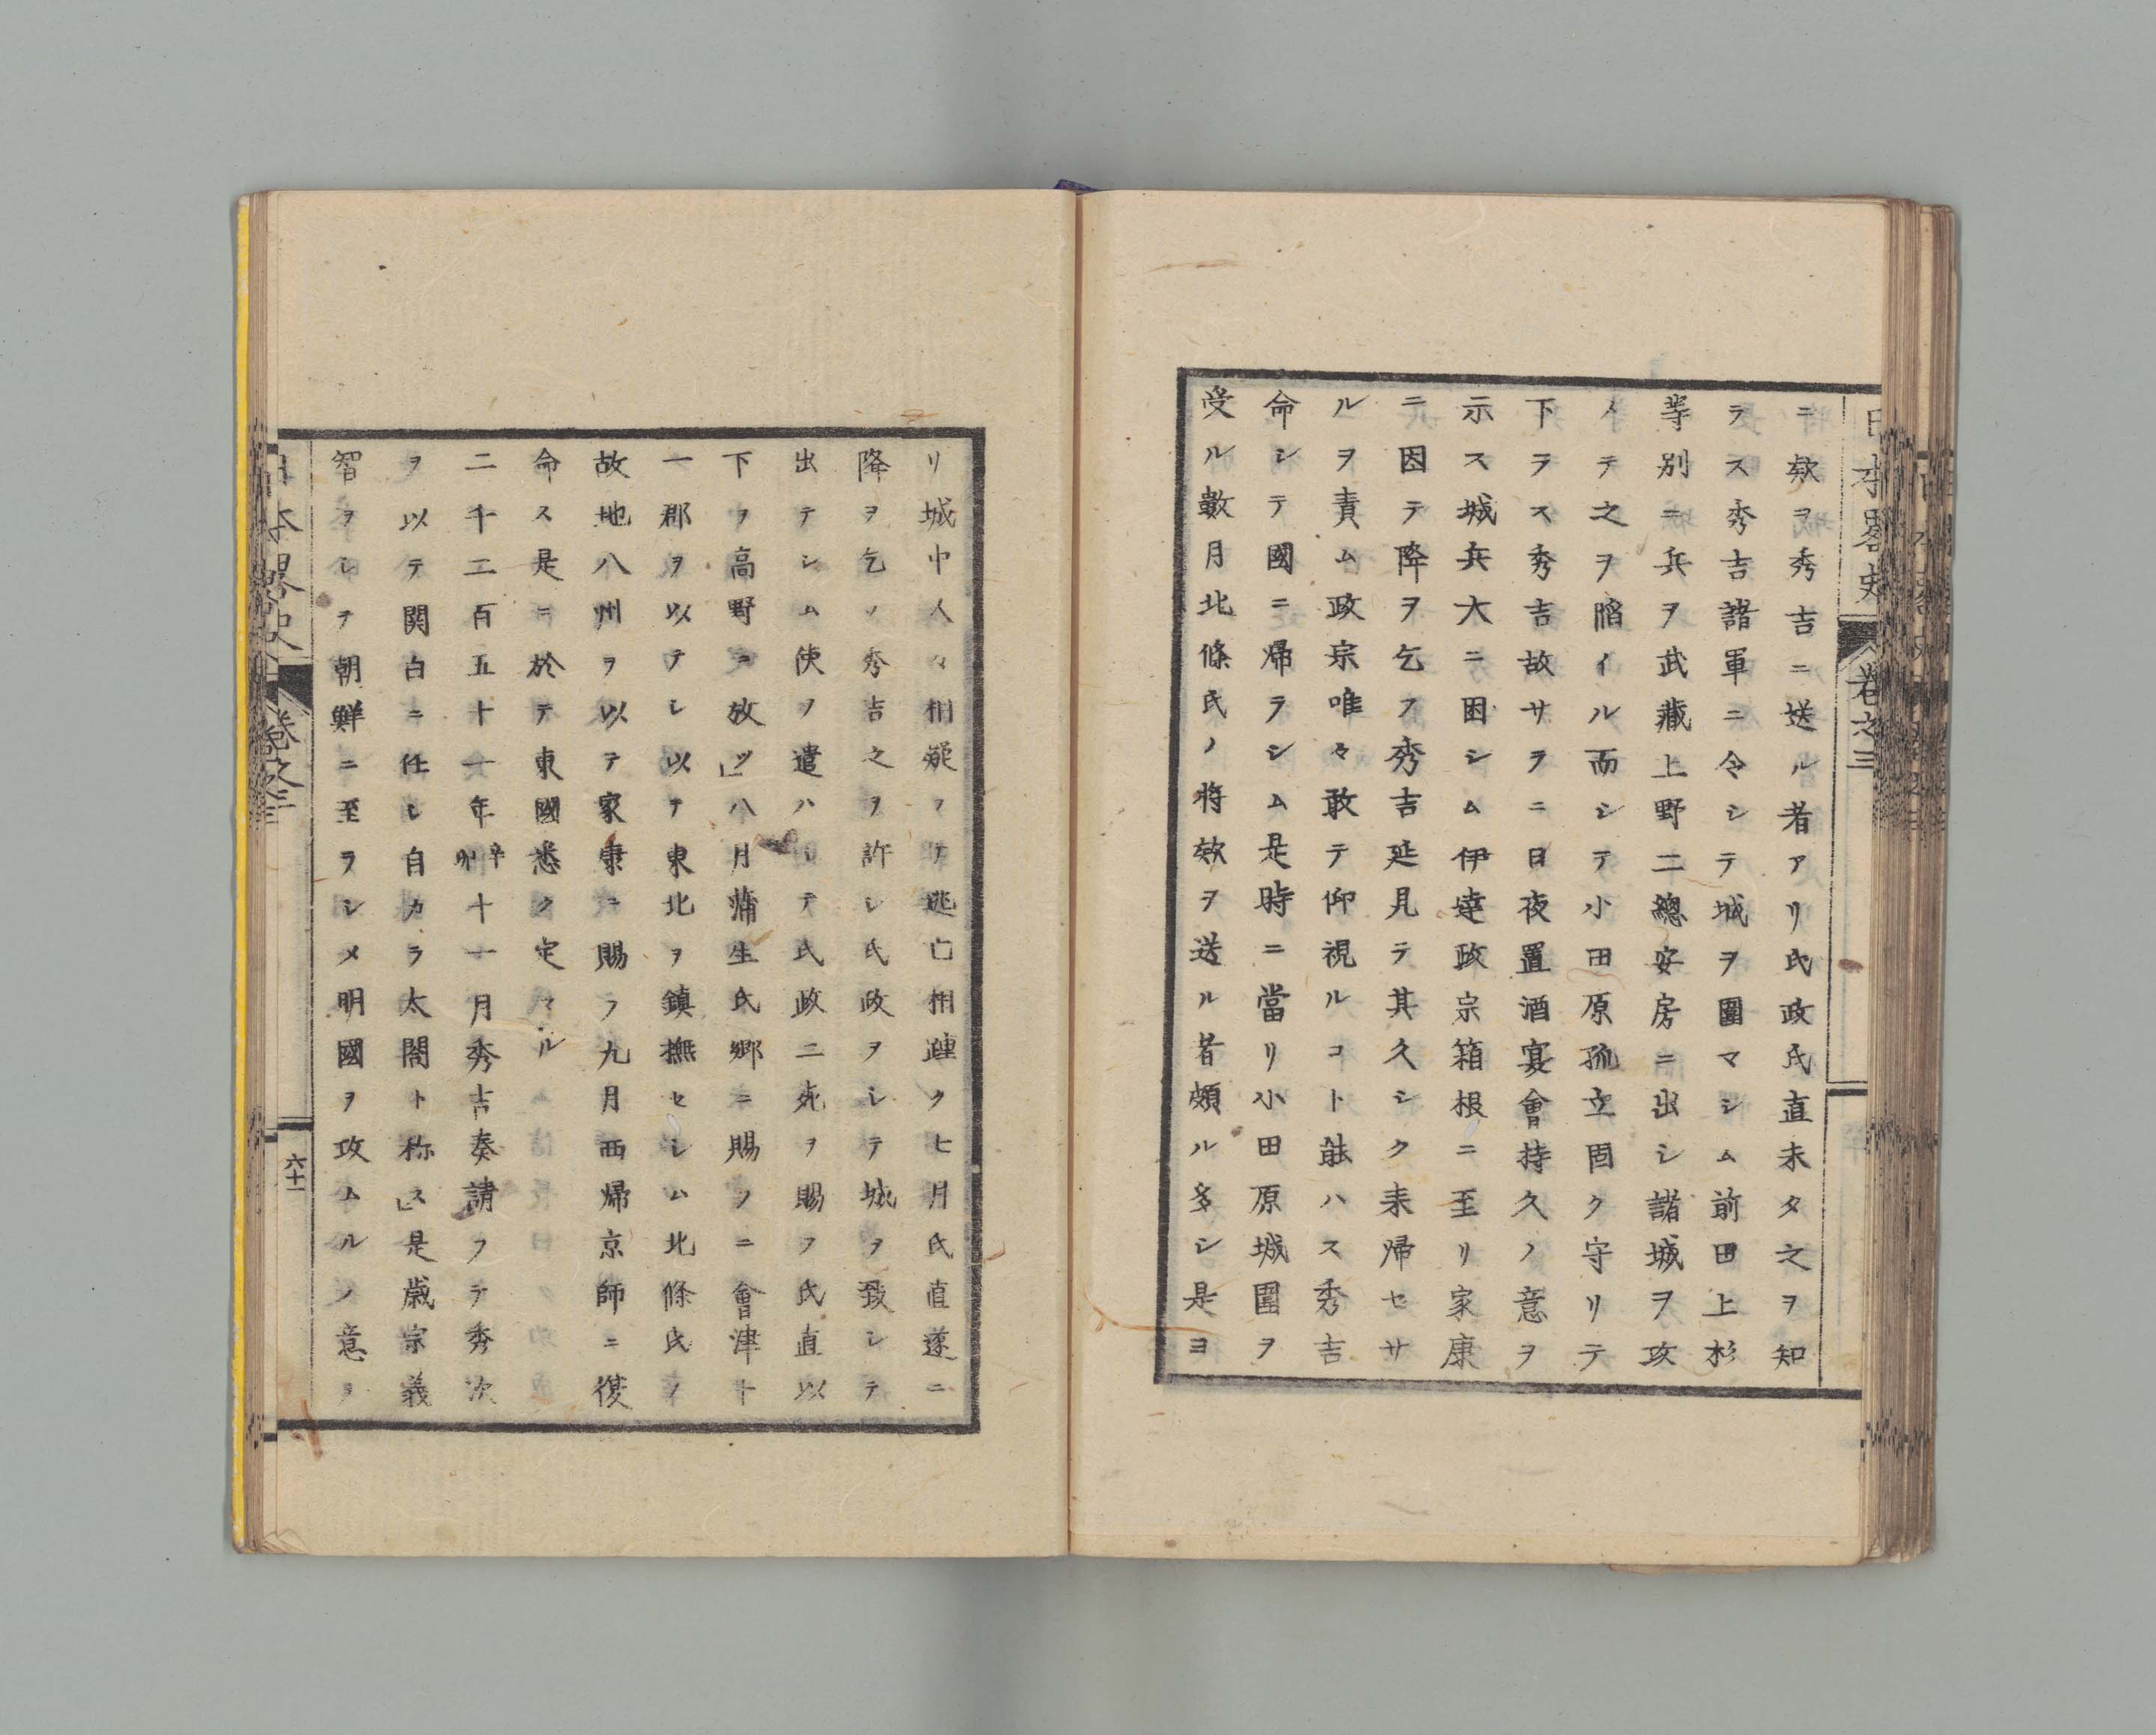 日本畧史 卷之三
ニ欵ヲ秀吉ニ送ル者アリ氏政氏直未タ之ヲ知
ラス秀吉諸軍ニ令シテ城ヲ圍マシム前田上杉
等別ニ兵ヲ武藏上野二總安房ニ出シ諸城ヲ攻
メテ之ヲ陷イル而シテ小田原孤立固ク守リテ
下ラス秀吉故サヲニ日夜置酒宴會持久ノ意ヲ
示ス城兵大ニ困シム伊達政宗箱根ニ至リ家康
ニ因テ降ヲ乞フ秀吉延見テ其久シク来帰セサ
ルヲ責ム政宗唯々敢テ仰視ルコト能ハス秀吉
命シテ國ニ帰ラシム是時ニ當リ小田原城圍ヲ
受ル數月北條氏ノ将欵ヲ送ル者頗ル多シ是ヨ
リ城中人々相疑フテ逃亡相連ク七月氏直遂ニ
降ヲ乞ノ秀吉之ヲ許シ氏政ヲシテ城ヲ致シテ
出テシム使ヲ遣ハシテ氏政ニ死ヲ賜フ氏直以
下ヲ高野ニ放ツ」八月蒲生氏郷ニ賜フニ會津十
一郡ヲ以テシ以テ東北ヲ鎮撫セシム北條氏ノ
故地八州ヲ以テ家康ニ賜フ九月西帰京師ニ復
命ス是ニ於テ東國悉ク定マル
二千二百五十一年辛卯十一月秀吉奏請フテ秀次
ヲ以テ関白ニ任シ自カラ太閤ト称ス」是歳宗義
智ヲシテ朝鮮ニ至ラシメ明國ヲ攻ムルノ意ヲ
日本畧史 卷之三
六十一